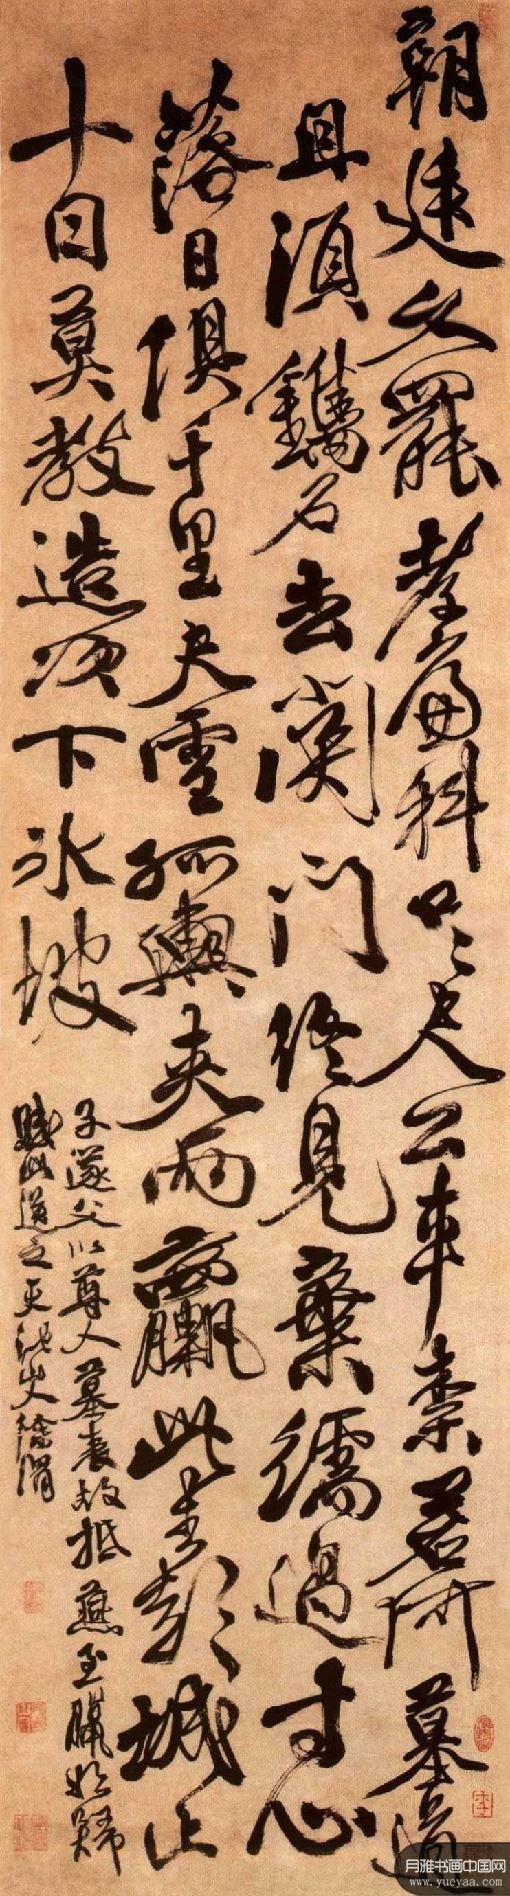 朝廷久罷孝廉科咫尺公車柰若何墓道
且須鐫石去關門終見棄繻過寸心
落日俱千里大雪孤輿夾兩驘此去彭城止
十日莫教造次下冰坡
子遂父以尊人墓表故抵燕至臘將歸
賦此送之天池徐渭
月雅书画中国网
www.yueyaa.com